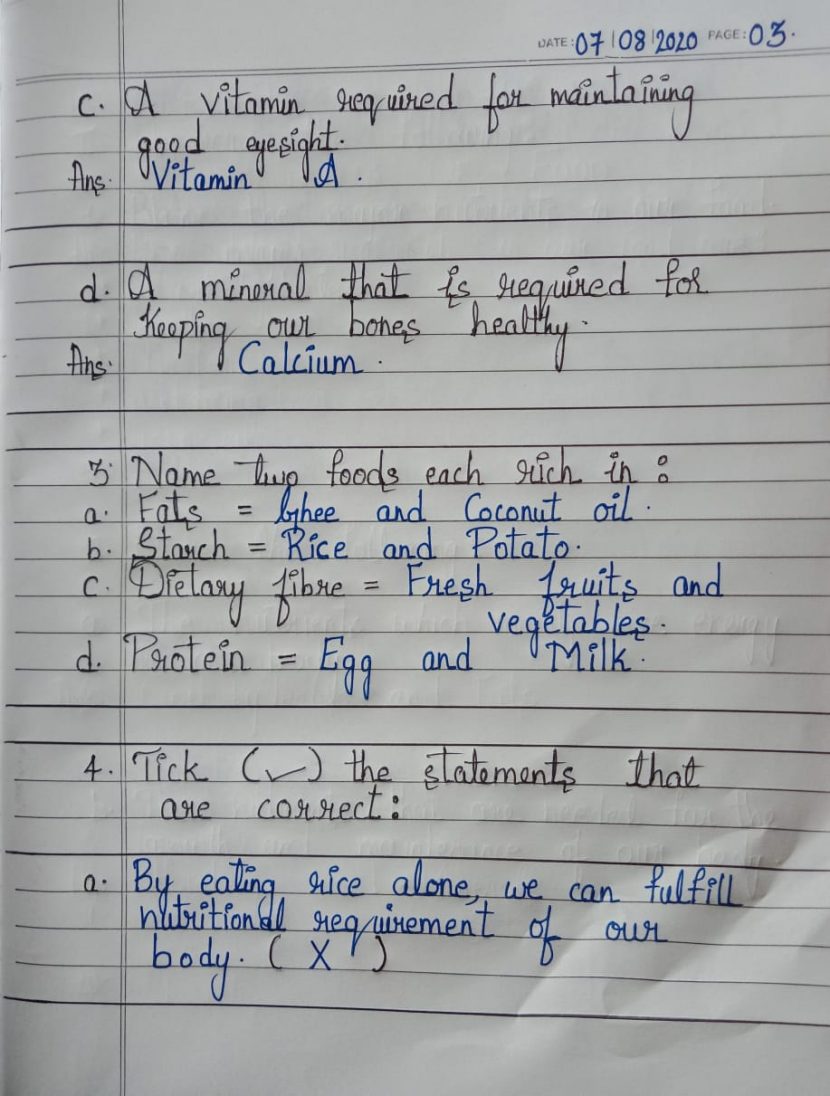 DATE: 07/08/2020 PAGE: 03.
c. A vitamin required for maintaining
good eyesight.
Ans. Vitamin A.
d. A mineral that is required for
Keeping our bones healthy.
Ans. Calcium.
3. Name two foods each rich in :
a. Fats = Ghee and Coconut oil.
b. Starch = Rice and Potato.
c. Dietary fibre = Fresh fruits and
vegetables.
d. Protein = Egg and Milk.
4. Tick (✓) the statements that
are correct:
a. By eating rice alone, we can fulfill
nutritional requirement of our
body. ( X )